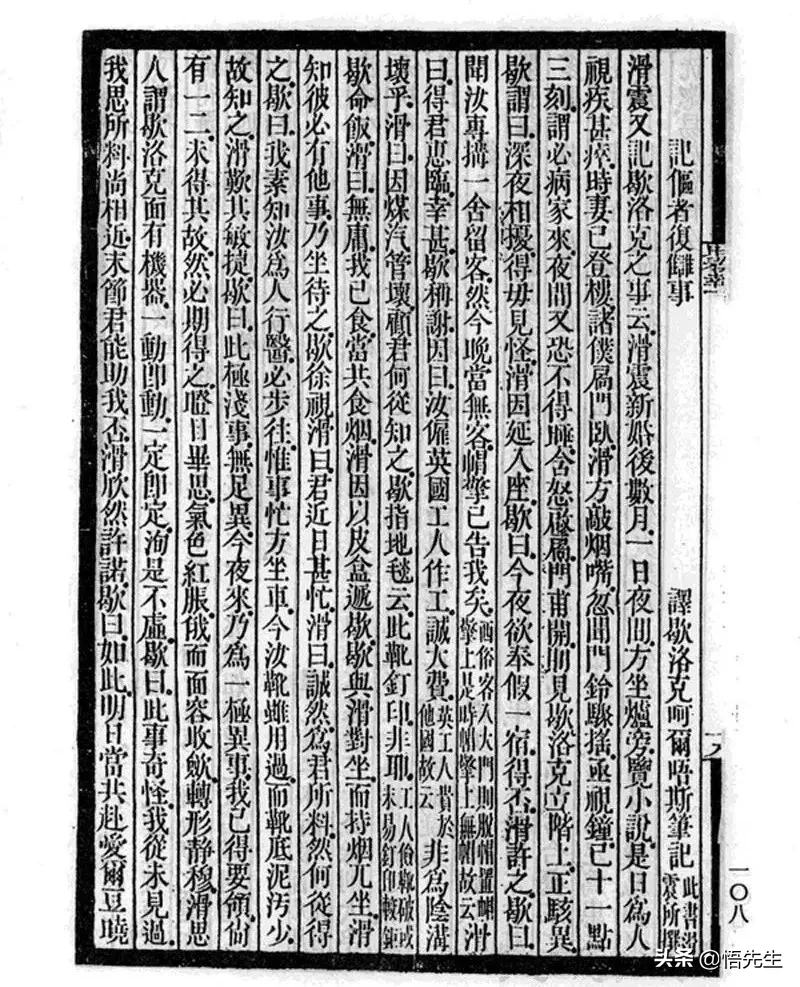 記傴者復讎事　譯歇洛克呵爾唔斯筆記 此書滑震所撰
滑震又記歇洛克之事云。滑震新婚後數月。一日夜間。方坐爐旁。覽小說。是日為人
視疾甚瘁。時妻已登樓。諸僕扃門臥。滑方敲烟嘴。忽聞門鈴驟搖。亟視鐘。已十一點
三刻。謂必病家來。夜間又恐不得睡。含怒啟扃。門甫開。則見歇洛克立階上。正駭異。
歇謂曰。深夜相擾。得毋見怪。滑因延入座。歇曰。今夜欲奉假一宿。得否。滑許之。歇曰。
聞汝專搆一舍留客。然今晚當無客。帽擎已告我矣。西俗客入大門則脫帽置帽擎上是時帽擎上無帽故云滑
曰。得君惠臨。幸甚。歇稱謝。因曰。汝僱英國工人作工。誠大費。英工人費於他國故云非為陰溝
壞乎。滑曰。因煤汽管壞。顧君何從知之。歇指地毯云。此靴釘印非耶。工人儉靴破或未易釘印較鉅
歇命飯。滑曰。無庸。我已食。當共食烟。滑因以皮盒遞歇。歇與滑對坐而持烟兀坐。滑
知彼必有他事。乃坐待之。歇徐視滑曰。君近日甚忙。滑曰。誠然。為君所料。然何從得
之。歇曰。我素知汝為人行醫。必步往。惟事忙方坐車。今汝靴雖用過。而靴底泥污少。
故知之。滑歎其敏捷。歇曰。此極淺事。無足異。今夜來。乃為一極異事。我已得要領。尚
有一二未得其故。然必期得之。瞪目畢思。氣色紅脹。俄而面容收斂。轉形靜穆。滑思
人謂歇洛克面有機器。一動即動。一定即定。洵是不虛。歇曰。此事奇怪。我從未見過。
我思所料尚相近。末節君能助我否。滑欣然許諾。歇曰。如此。明日當共赴愛爾豆曉
一〇八
头条 @悟先生